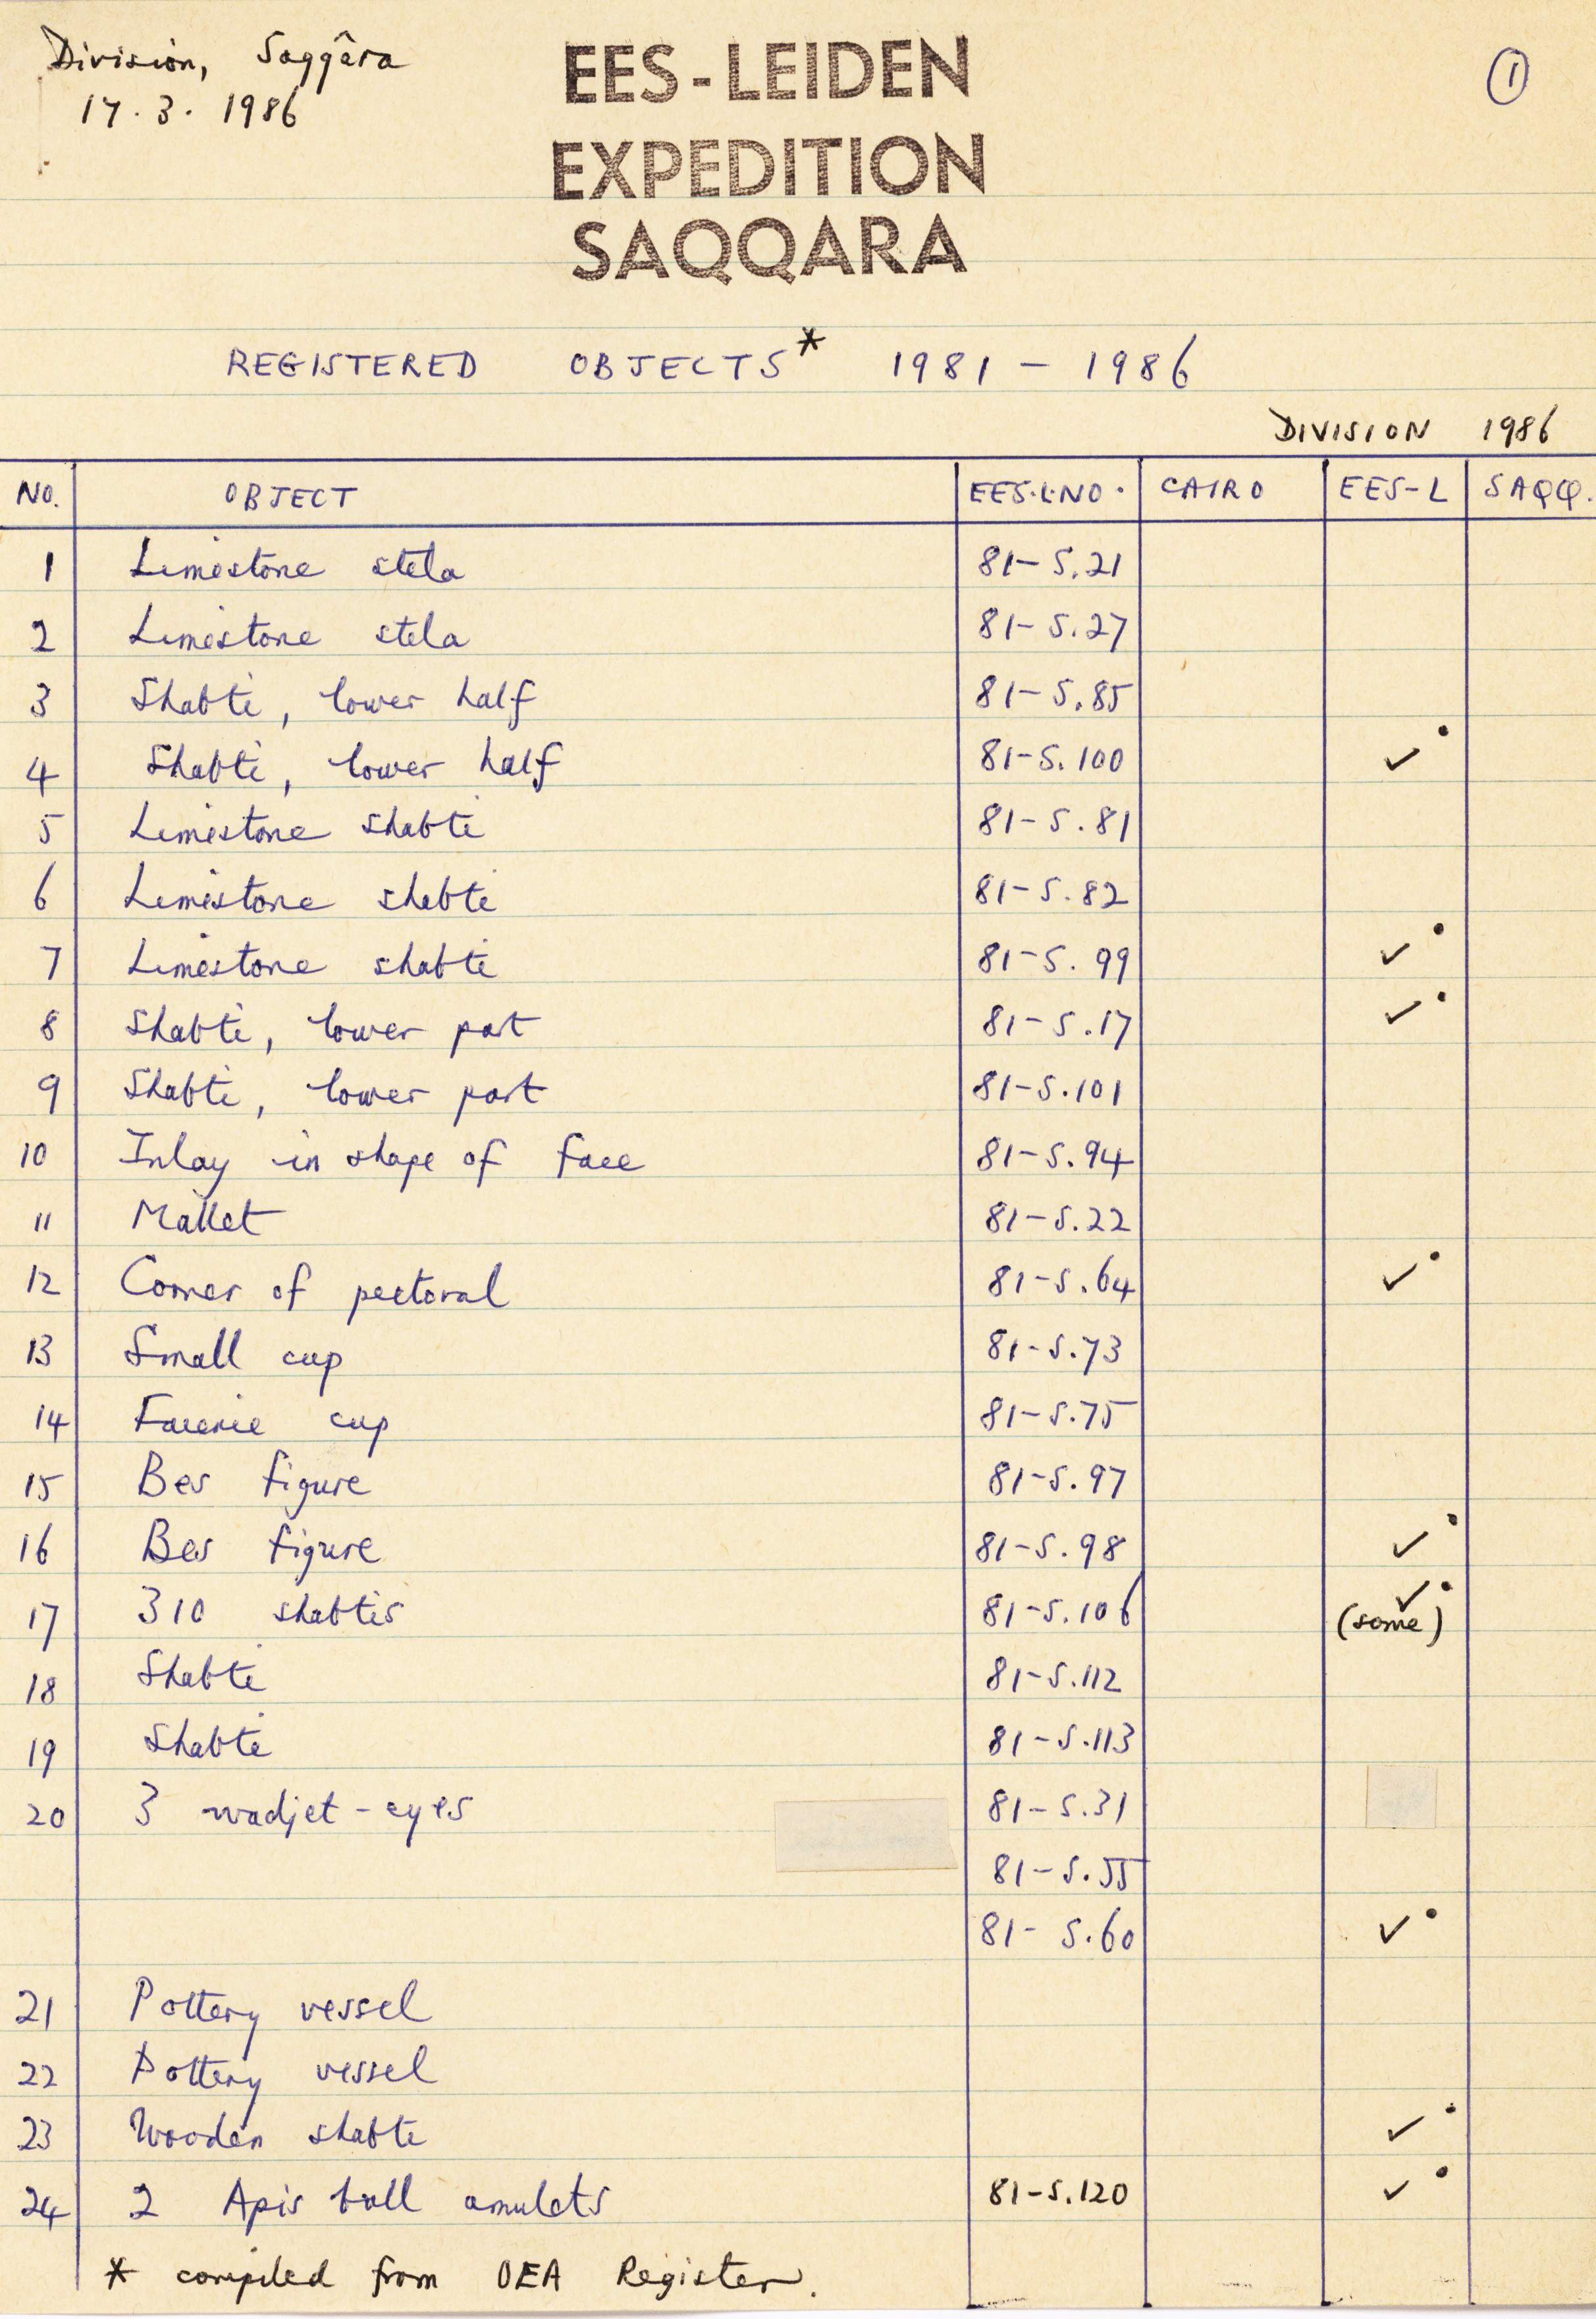 Division, Saqqâra
17.3.1986
①
EES-LEIDEN
EXPEDITION
SAQQARA
REGISTERED OBJECTS* 1981 – 1986
DIVISION 1986
NO. OBJECT EES.L.NO. CAIRO EES-L SAQQ.
1 Limestone stela 81-S.21
2 Limestone stela 81-S.27
3 Shabti, lower half 81-S.85
4 Shabti, lower half 81-S.100 ✓•
5 Limestone shabti 81-S.81
6 Limestone shabti 81-S.82
7 Limestone shabti 81-S.99 ✓•
8 Shabti, lower part 81-S.17 ✓•
9 Shabti, lower part 81-S.101
10 Inlay in shape of face 81-S.94
11 Mallet 81-S.22
12 Corner of pectoral 81-S.64 ✓•
13 Small cup 81-S.73
14 Faience cup 81-S.75
15 Bes figure 81-S.97
16 Bes figure 81-S.98 ✓•
17 310 shabtis 81-S.106 ✓• (some)
18 Shabti 81-S.112
19 Shabti 81-S.113
20 3 wadjet-eyes 81-S.31
81-S.55
81-S.60 ✓•
21 Pottery vessel
22 Pottery vessel
23 Wooden shabti ✓•
24 2 Apis bull amulets 81-S.120 ✓•
* compiled from OEA Register.